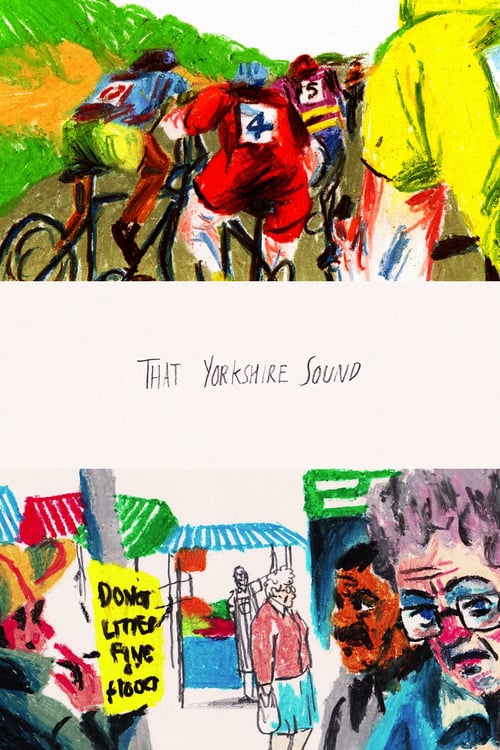 4
5
THAT YORKSHIRE SOUND
DON'T
LITTER
FINE
£1000